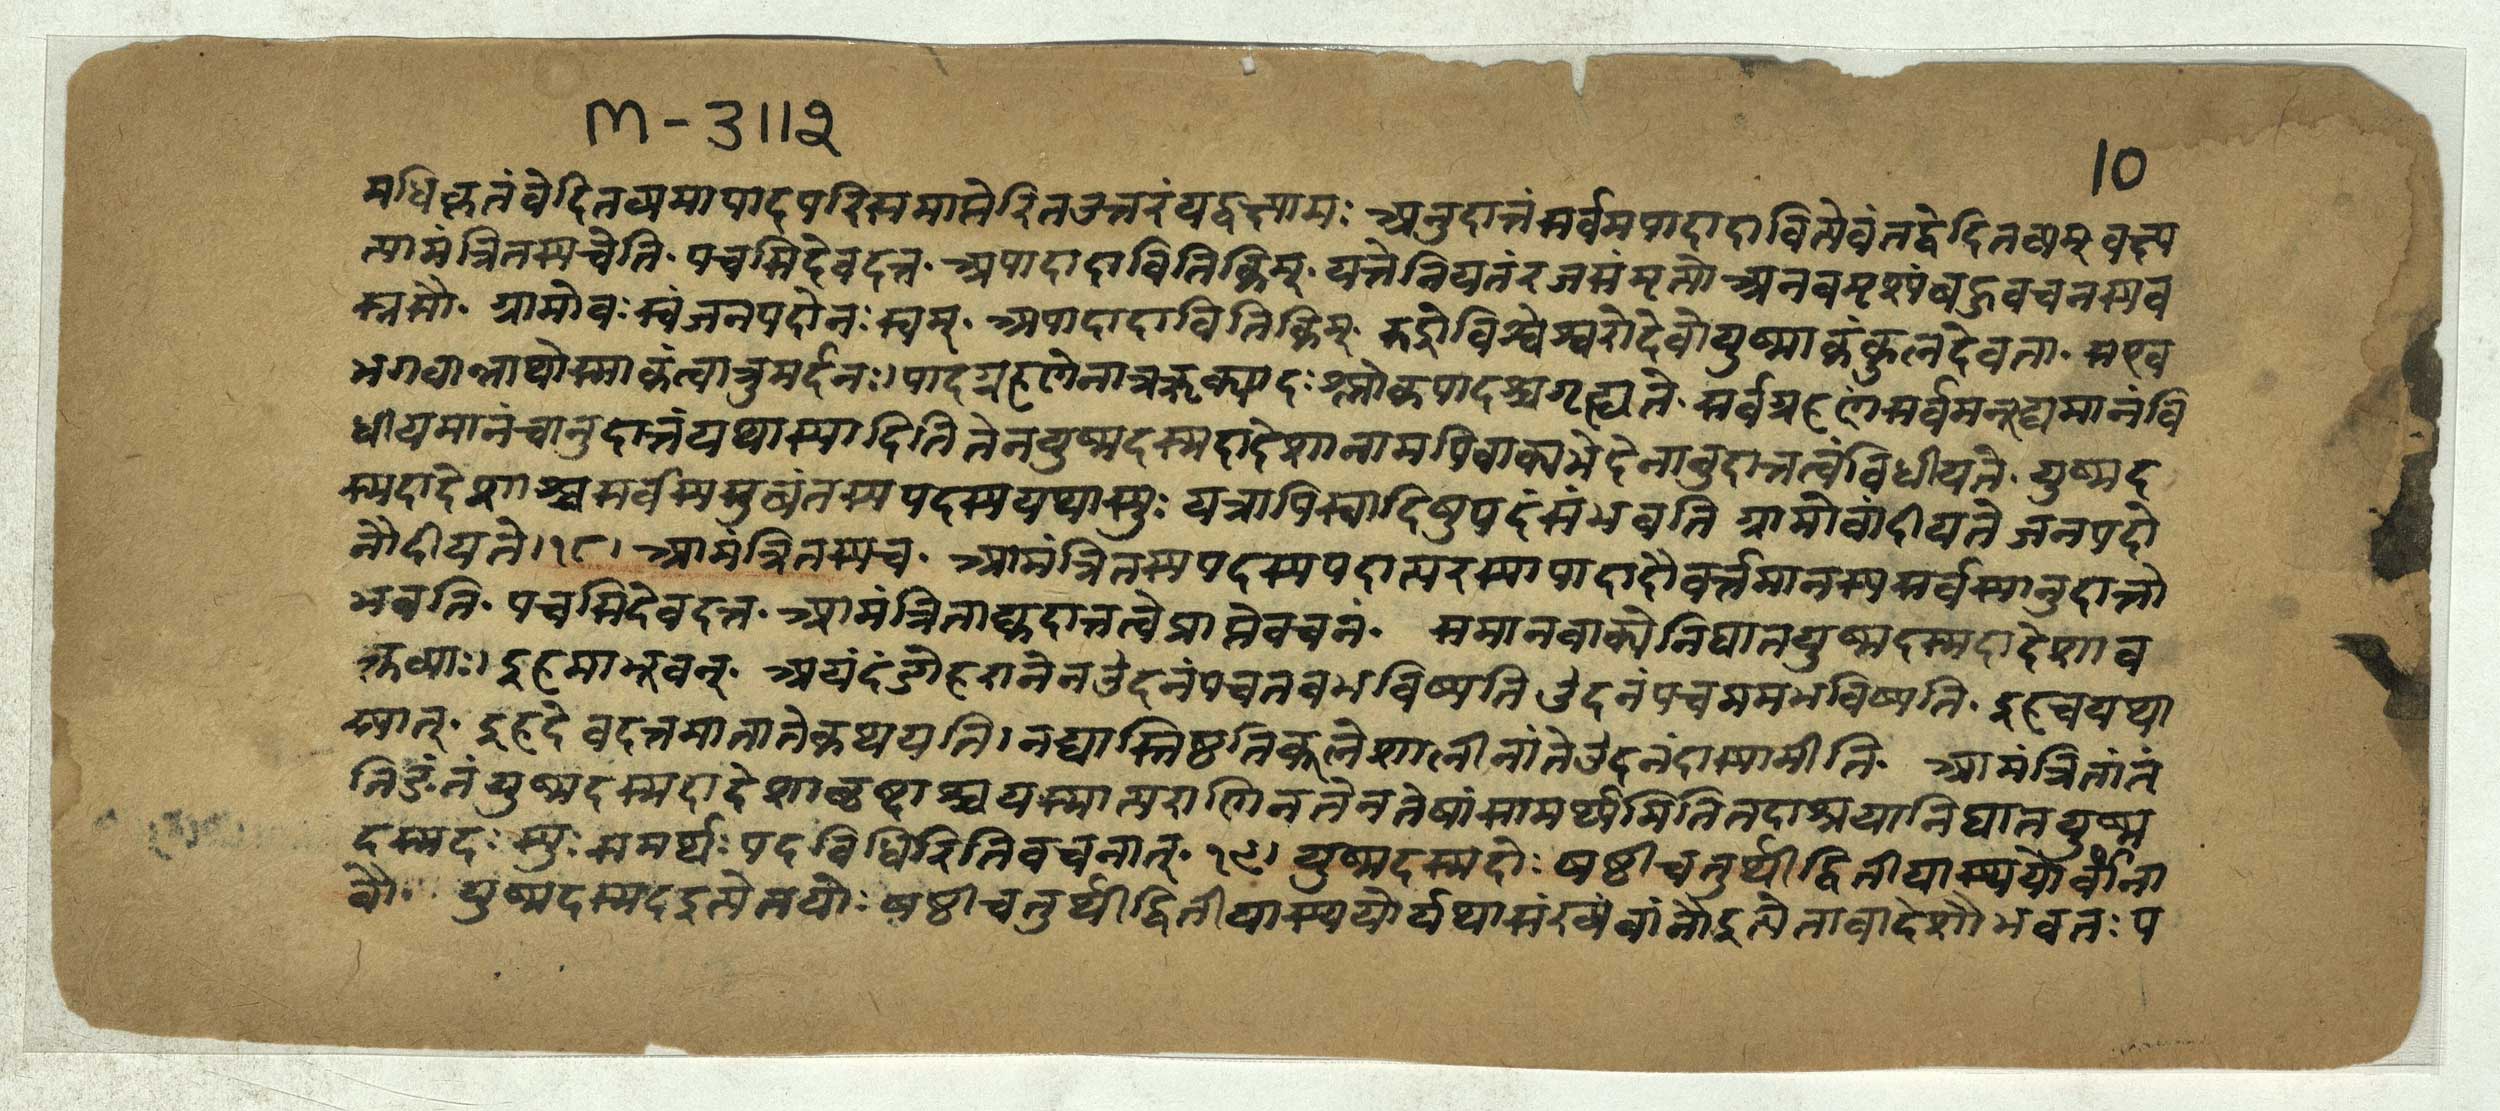 m-3112
10
मधिकृतंवेदितव्यमापादपरिसमाप्तेरितउत्तरंयद्वक्ष्यामः अनुदात्तंसर्वमपादादावित्येवंतद्वेदितव्यम् वक्ष्य
त्यामंत्रितस्यचेति॰ पचसिदेवदत्त॰ अपादादावितिकिम्॰ यत्तेनियतंरजसंमृत्यो अनवमृश्यं बहुवचनस्यव
स्नसौ॰ ग्रामोवःस्वंजनपदोनःस्वम्॰ अपादादावितिकिम्॰ रुद्रोविश्वेश्वरोदेवोयुष्माकंकुलदेवता॰ सएव
भगवान्नाथोस्माकंशत्रुमर्दनः। पादग्रहणेनात्रऋक्पादःश्लोकपादश्चगृह्यते॰ सर्वग्रहणंसर्वमनूद्यमानंवि
धीयमानंचानुदात्तंयथास्यादिति तेनयुष्मदस्मदादेशानामपिवाक्यभेदेनानुदात्तत्वंविधीयते॰ युष्मद
स्मदादेशाश्चसर्वस्यसुबंतस्यपदस्ययथास्युः यत्रापिस्वादिषुपदंसंभवति ग्रामोवांदीयते जनपदो
नौदीयते।१८। आमंत्रितस्यच॰ आमंत्रितस्यपदस्यपदात्परस्यापादादौवर्त्तमानस्यसर्वस्यानुदात्तो
भवति॰ पचसिदेवदत्त॰ आमंत्रिताद्युदात्तत्वेप्राप्तेवचनं॰ समानवाक्येनिघातयुष्मदस्मदादेशाव
क्तव्याः। इहमाभूवन्॰ अयंदंडोहरानेनउदनंपचतवभविष्यति उदनंपचममभविष्यति॰ इहचयथा
स्यात्॰ इहदेवदत्तमातातेकथयति। नद्यास्तिष्ठतिकूलेशालीनांतेउदनंदास्यामीति॰ आमंत्रितांतं
तिङंतंयुष्मदस्मदादेशाश्च यस्मात्पराणिनतेनतेषांसामर्थ्यमितितदाश्रयानिघातयुष्म
दस्मदः स्युः समर्थः पदविधिरितिवचनात्॰ १९। युष्मदस्मदोः षष्ठीचतुर्थीद्वितीयास्थयोर्वांना
वौ॰ युष्मदस्मदइत्येतयोः षष्ठीचतुर्थीद्वितीयास्थयोर्यथासंख्यंवांनौइत्येतावादेशौभवतः प